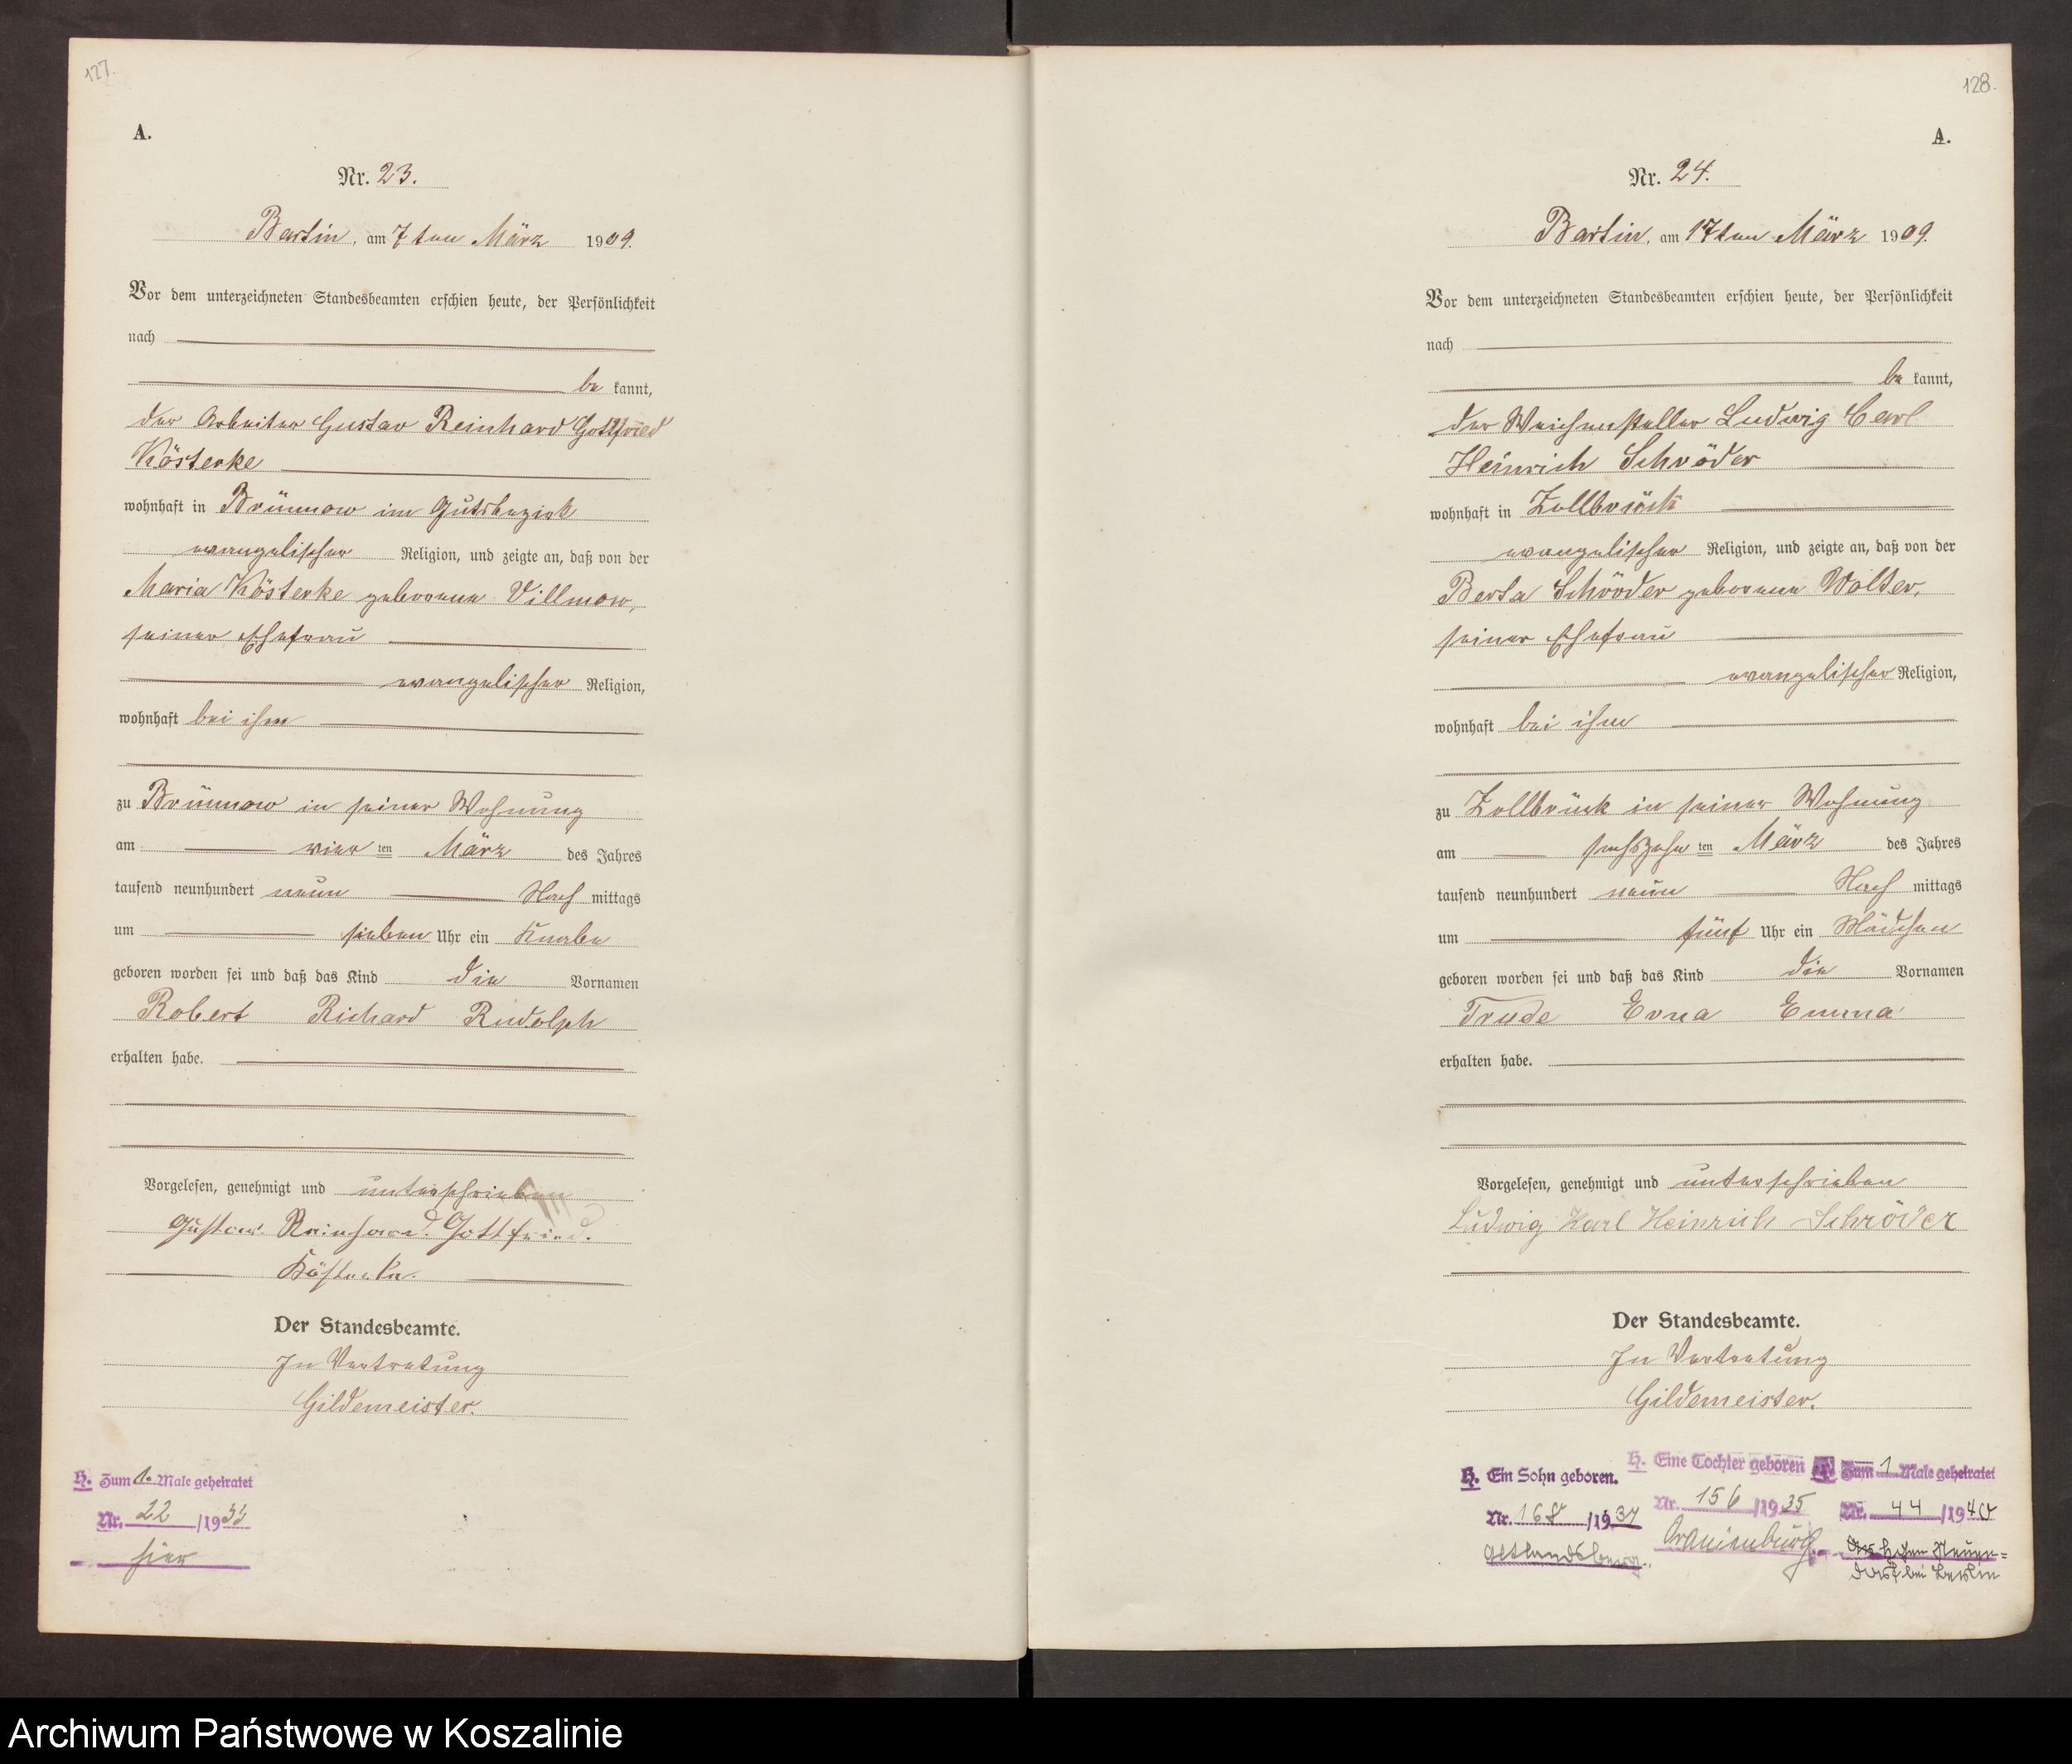 127.
A.
Nr. 23.
Bartin, am 7ten März 1909.
Vor dem unterzeichneten Standesbeamten erschien heute, der Persönlichkeit
nach
be kannt,
der Arbeiter Gustav Reinhard Gottfried
Kösterke
wohnhaft in Brünnow im Gutsbezirk
evangelischer Religion, und zeigte an, daß von der
Maria Kösterke geborene Villmow,
seiner Ehefrau
evangelischer Religion,
wohnhaft bei ihm
zu Brünnow in seiner Wohnung
am vier ten März des Jahres
tausend neunhundert neun Nach mittags
um sieben Uhr ein Knabe
geboren worden sei und daß das Kind die Vornamen
Robert Richard Rudolph
erhalten habe.
Vorgelesen, genehmigt und unterschrieben
Gustav Reinhard Gottfried.
Kösterke.
Der Standesbeamte.
In Vertretung
Gildemeister.
H. Zum 1. Male geheiratet
Nr. 22 /1933
hier
128.
A.
Nr. 24.
Bartin, am 17ten März 1909.
Vor dem unterzeichneten Standesbeamten erschien heute, der Persönlichkeit
nach
be kannt,
der Weichensteller Ludwig Carl
Heinrich Schröder
wohnhaft in Zollbrück
evangelischer Religion, und zeigte an, daß von der
Berta Schröder geborene Wolter,
seiner Ehefrau
evangelischer Religion,
wohnhaft bei ihm
zu Zollbrück in seiner Wohnung
am sechszehn ten März des Jahres
tausend neunhundert neun Nach mittags
um fünf Uhr ein Mädchen
geboren worden sei und daß das Kind die Vornamen
Trude Erna Emma
erhalten habe.
Vorgelesen, genehmigt und unterschrieben
Ludwig Karl Heinrich Schröder
Der Standesbeamte.
In Vertretung
Gildemeister.
H. Ein Sohn geboren.
Nr. /19
Altlandsberg.
H. Eine Tochter geboren
Nr. 156 /1935
Oranienburg
Zum 1 Male geheiratet
Nr. 44 /1940
Neuen=
dorf bei Berlin
Archiwum Państwowe w Koszalinie